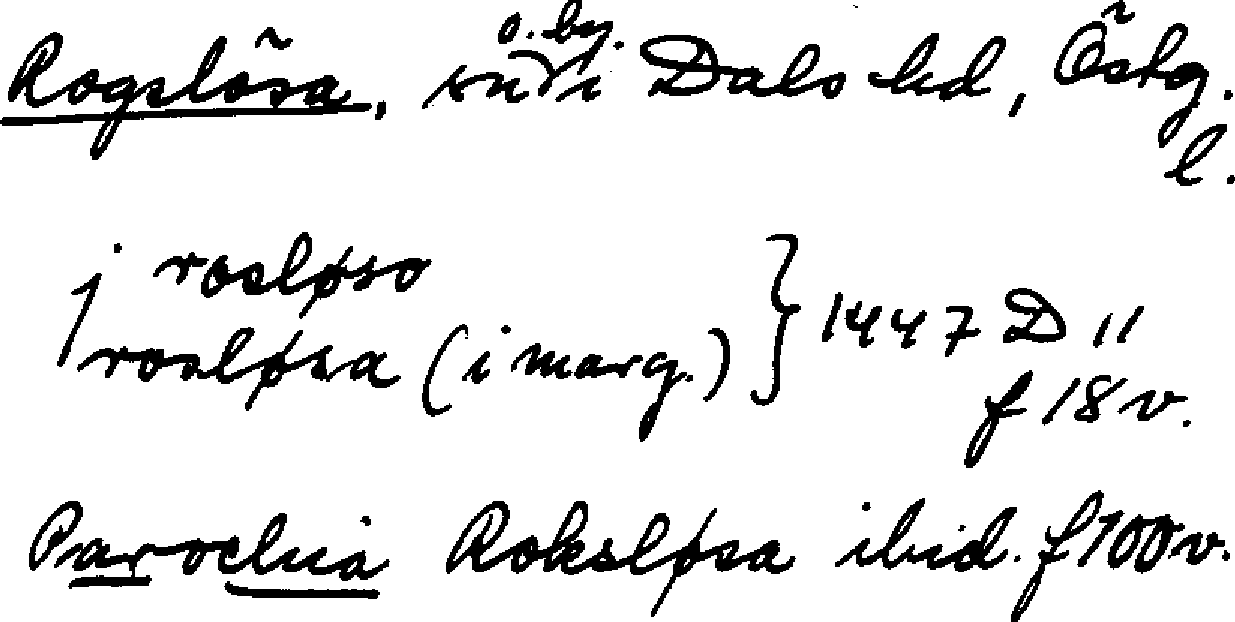 Rogslösa, sn o. by. i Dals hd, Östg.
l.
j rosløso
rosløsa (i marg.) } 1447 D 11
f 18 v.
Parochia Roksløsa ibid. f 100 v.